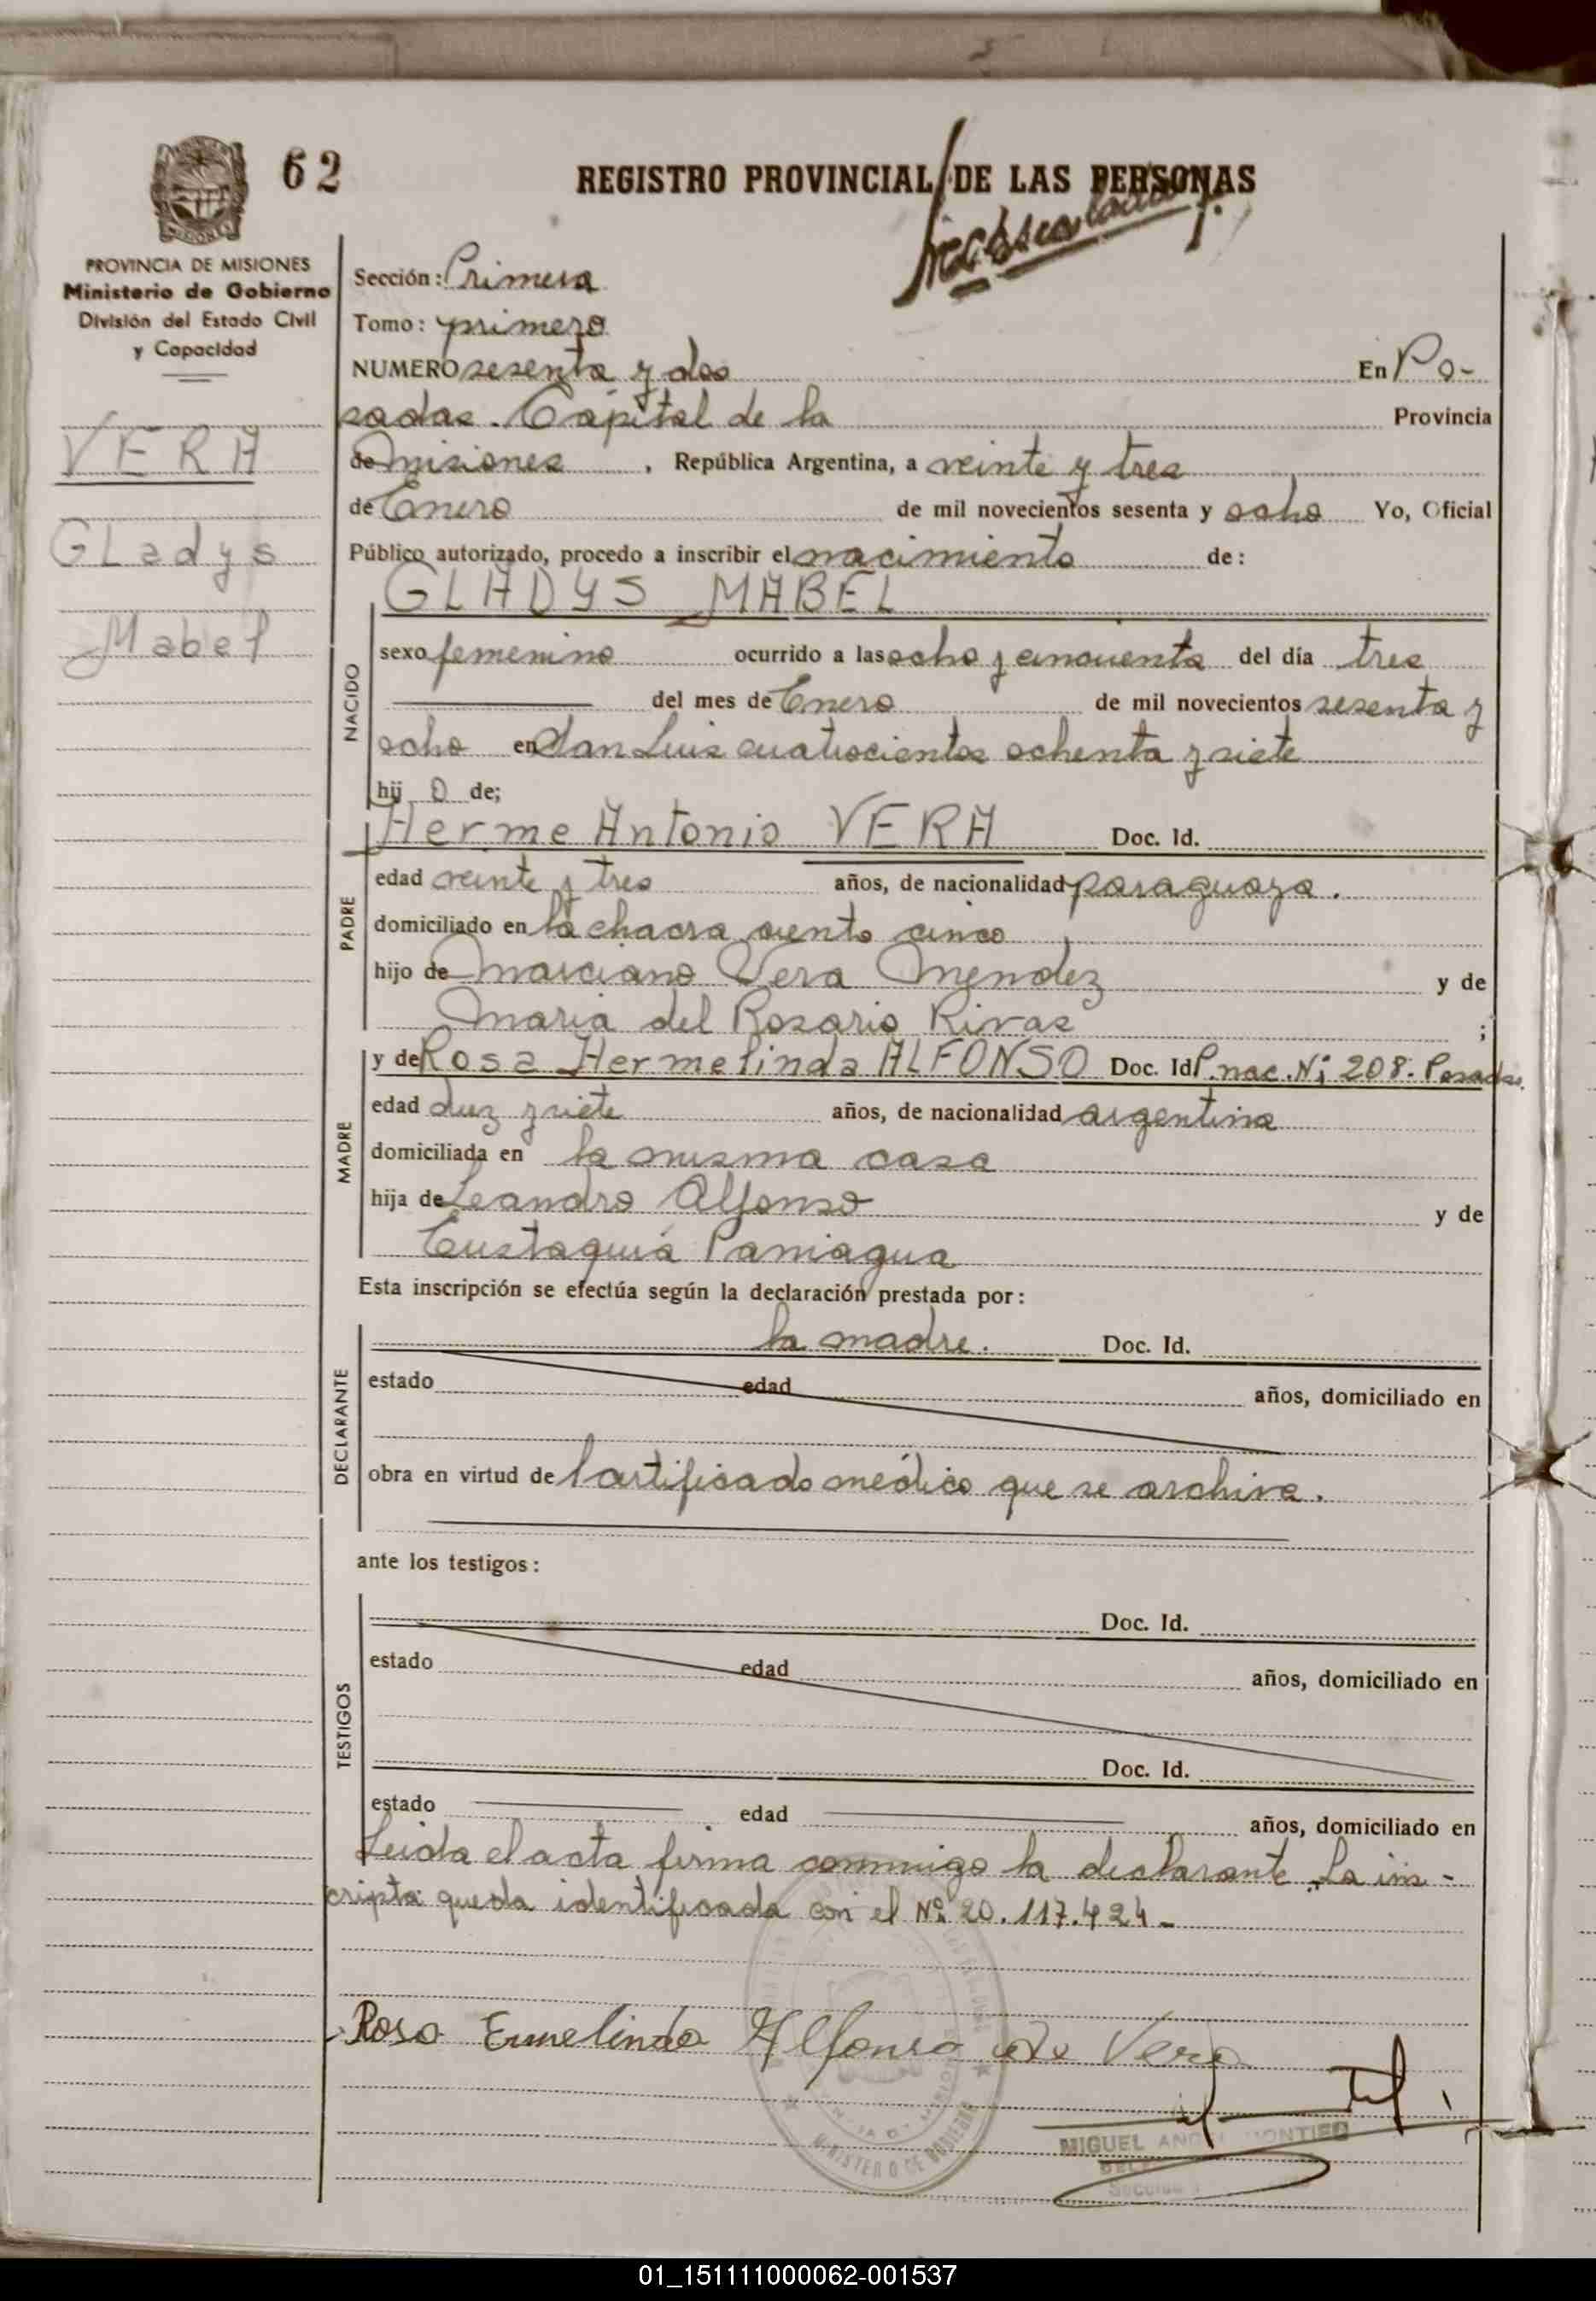 62
REGISTRO PROVINCIAL DE LAS PERSONAS
PROVINCIA DE MISIONES
Ministerio de Gobierno
División del Estado Civil
y Capacidad
VERA
GLadys
Mabel
Sección: Primera
Tomo: primero
NUMERO sesenta y dos En Po-
sadas. Capital de la Provincia
de Misiones, República Argentina, a veinte y tres
de Enero de mil novecientos sesenta y ocho Yo, Oficial
Público autorizado, procedo a inscribir el nacimiento de:
GLADYS MABEL
NACIDO
sexo femenino ocurrido a las ocho y cincuenta del día tres
del mes de Enero de mil novecientos sesenta y
ocho en San Luis cuatrocientos ochenta y siete
hij o de;
PADRE
Herme Antonio VERA Doc. Id.
edad veinte y tres años, de nacionalidad paraguaya.
domiciliado en la chacra ciento cinco
hijo de Marciano Vera Mendez y de
Maria del Rosario Rivas ;
MADRE
y de Rosa Hermelinda ALFONSO Doc. Id P. nac. N: 208. Posadas.
edad diez y siete años, de nacionalidad argentina
domiciliada en la misma casa
hija de Leandro Alfonso y de
Eustaquia Paniagua
Esta inscripción se efectúa según la declaración prestada por:
DECLARANTE
la madre. Doc. Id.
estado edad años, domiciliado en
obra en virtud de certificado médico que se archiva.
ante los testigos:
TESTIGOS
Doc. Id.
estado edad años, domiciliado en
Doc. Id.
estado edad años, domiciliado en
Leida el acta firma conmigo la declarante. La ins-
cripta queda identificada con el Nº 20.117.424-
Rosa Ermelinda Alfonso de Vera
MINISTERIO DE GOBIERNO
MIGUEL ANGEL MONTIEL
01_151111000062-001537